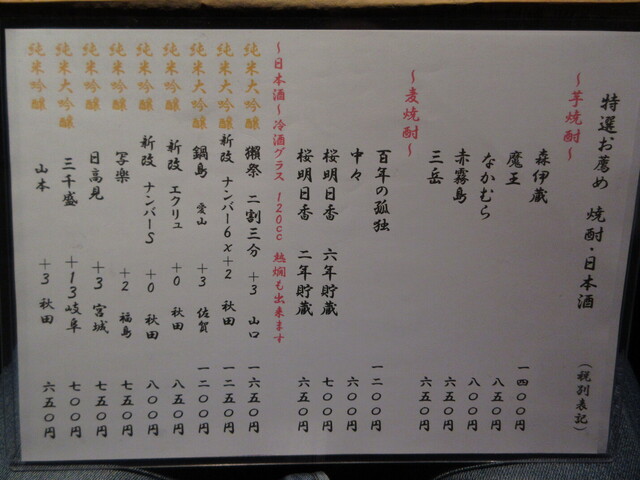 特選お薦め 焼酎・日本酒 (税別表記)
～芋焼酎～
森伊蔵 一四〇〇円
魔王 八五〇円
なかむら 八〇〇円
赤霧島 六五〇円
三岳 六五〇円
～麦焼酎～
百年の孤独 一二〇〇円
中々 六〇〇円
桜明日香 六年貯蔵 七〇〇円
桜明日香 二年貯蔵 六五〇円
～日本酒～冷酒グラス 120cc 熱燗も出来ます
純米大吟醸 獺祭 二割三分 +3 山口 一六五〇円
純米大吟醸 新政 ナンバー6x+2 秋田 一二五〇円
純米大吟醸 鍋島 愛山 +3 佐賀 一二〇〇円
純米吟醸 新政 エクリュ +0 秋田 八五〇円
純米吟醸 新政 ナンバーS +0 秋田 八〇〇円
純米吟醸 写楽 +2 福島 七五〇円
純米吟醸 日高見 +3 宮城 七五〇円
純米大吟醸 三千盛 +13岐阜 七〇〇円
純米吟醸 山本 +3 秋田 六五〇円